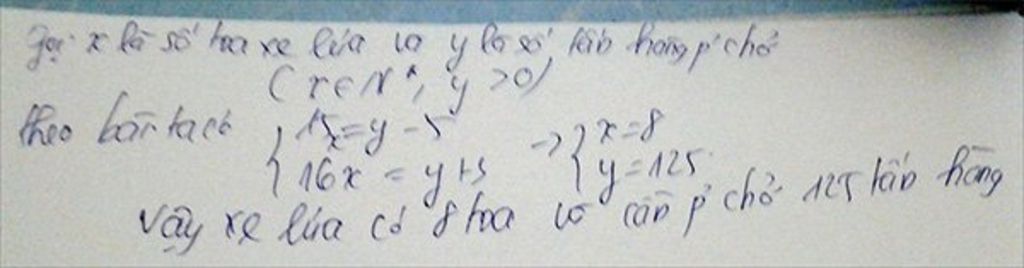 Gọi x là số toa xe lửa và y là số tấn hàng p' chở
(x ∈ N*, y > 0)
theo bài ta có { 15x = y - 5 → { x = 8
{ 16x = y + 3 { y = 125
Vậy xe lửa có 8 toa và cần p' chở 125 tấn hàng